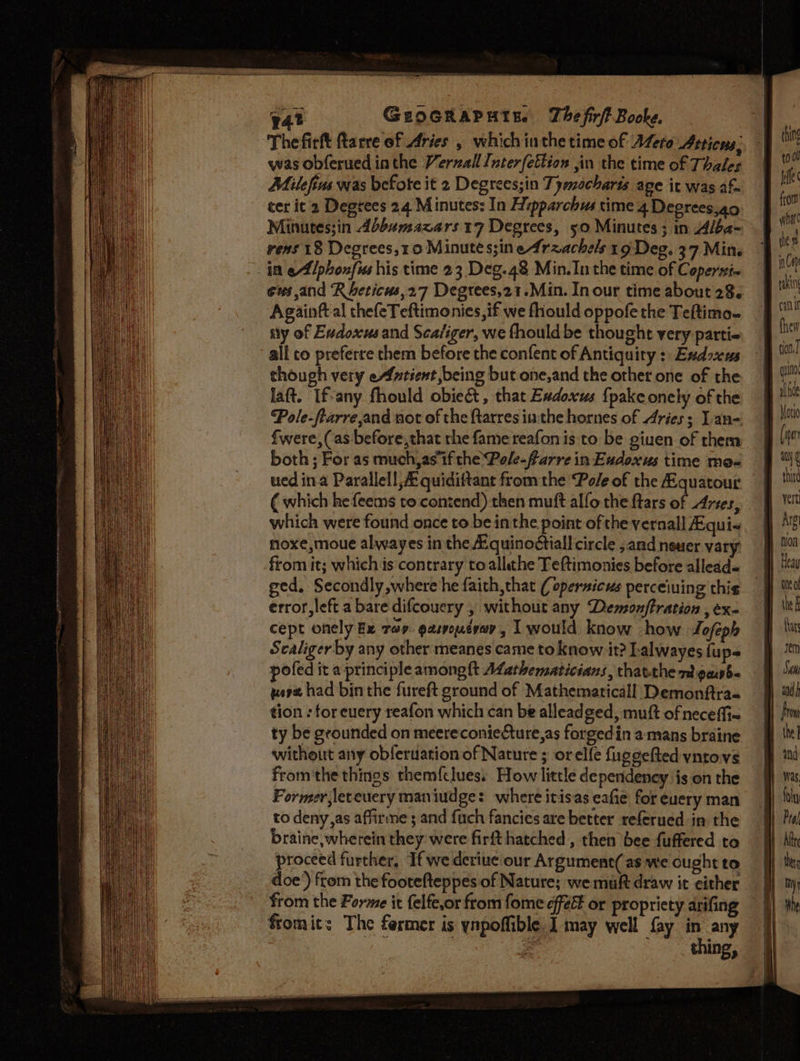 142 GEOGRAPHIE. The first Booke.
The first starre of Aries , which in the time of Meto Atticus,
was obserued in the Vernall Intersection ,in the time of Thales
Milesius was before it 2 Degrees;in Tymocharis age it was af-
ter it 2 Degrees 24 Minutes: In Hipparchus time 4 Degrees,40
Minutes;in Abbumazars 17 Degrees, 50 Minutes ; in Alba-
rens 18 Degrees,10 Minutes;in Arzachels 19 Deg. 37 Min.
in Alphonsus his time 23 Deg.48 Min.In the time of Coperni-
cus ,and Rheticus,27 Degrees,21.Min. In our time about 28.
Against al these Testimonies,if we should oppose the Testimo-
ny of Eudoxus and Scaliger, we should be thought very parti-
all to preferre them before the consent of Antiquity : Eudoxus
though very Antient,being but one,and the other one of the
last. If any should obiect , that Eudoxus spake onely of the
Pole-starre,and not of the starres in the hornes of Aries ; I an-
swere,(as before,that the same reason is to be giuen of them
both ; For as much,as if the Pole-starre in Eudoxus time mo-
ued in a Parallell,Æquidistant from the Pole of the Æquatour
( which he seems to contend) then must also the stars of Aries,
which were found once to be in the point of the vernall Æqui-
noxe,moue alwayes in the Æquinoctiall circle ,and neuer vary
from it; which is contrary to all the Testimonies before allead-
ged. Secondly,where he saith,that Copernicus perceiuing this
error,left a bare discouery , without any Demonstration , ex-
cept onely Ex τῶν φαινομένων , I would know how Ioseph
Scaliger by any other meanes came to know it? I alwayes sup-
posed it a principle amongst Mathematicians, that the τὰ φαινό-
μενα had bin the surest ground of Mathematicall Demonstra-
tion : for euery reason which can be alleadged, must of necessi-
ty be grounded on meere coniecture,as forged in a mans braine
without any obseruation of Nature ; or else suggested vnto vs
from the things themselues. How little dependency is on the
Former,let euery man iudge: where it is as easie for euery man
to deny,as affirme ; and such fancies are better referued in the
braine,wherein they were first hatched , then bee suffered to
proceed further. If we deriue our Argument( as we ought to
doe ) from the footesteppes of Nature; we must draw it either
from the Forme it selfe,or from some effect or propriety arising
from it: The former is vnpossible. I may well say in any
thing,